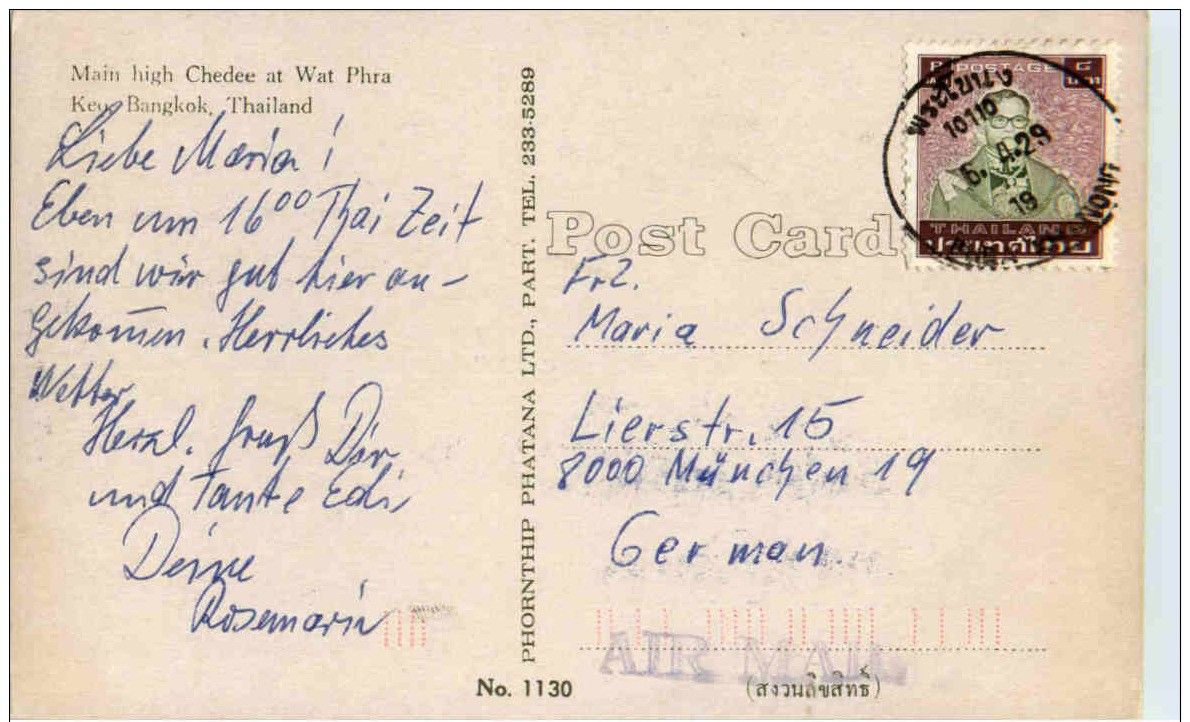 Main high Chedee at Wat Phra
Keo, Bangkok, Thailand
Liebe Maria!
Eben um 16⁰⁰ Thai Zeit
sind wir gut hier an-
gekommen. Herrliches
Wetter
Herzl. Gruß Dir
und Tante Edi
Deine
Rosemarie
PHORNTHIP PHATANA LTD., PART. TEL. 233-5289
No. 1130
POSTAGE
พระโขนง
10110
6. 4.29
19
NONG
THAILAND
ประเทศไทย
Post Card
Frl.
Maria Schneider
Lierstr. 15
8000 München 19
German.
AIR MAIL
(สงวนลิขสิทธิ์)